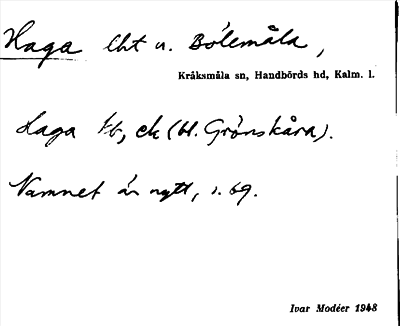 Haga lht u. Bölemåla,
Kråksmåla sn, Handbörds hd, Kalm. l.
Haga tb, ek (bl. Grönskåra).
Namnet är nytt, s. 69.
Ivar Modéer 1948